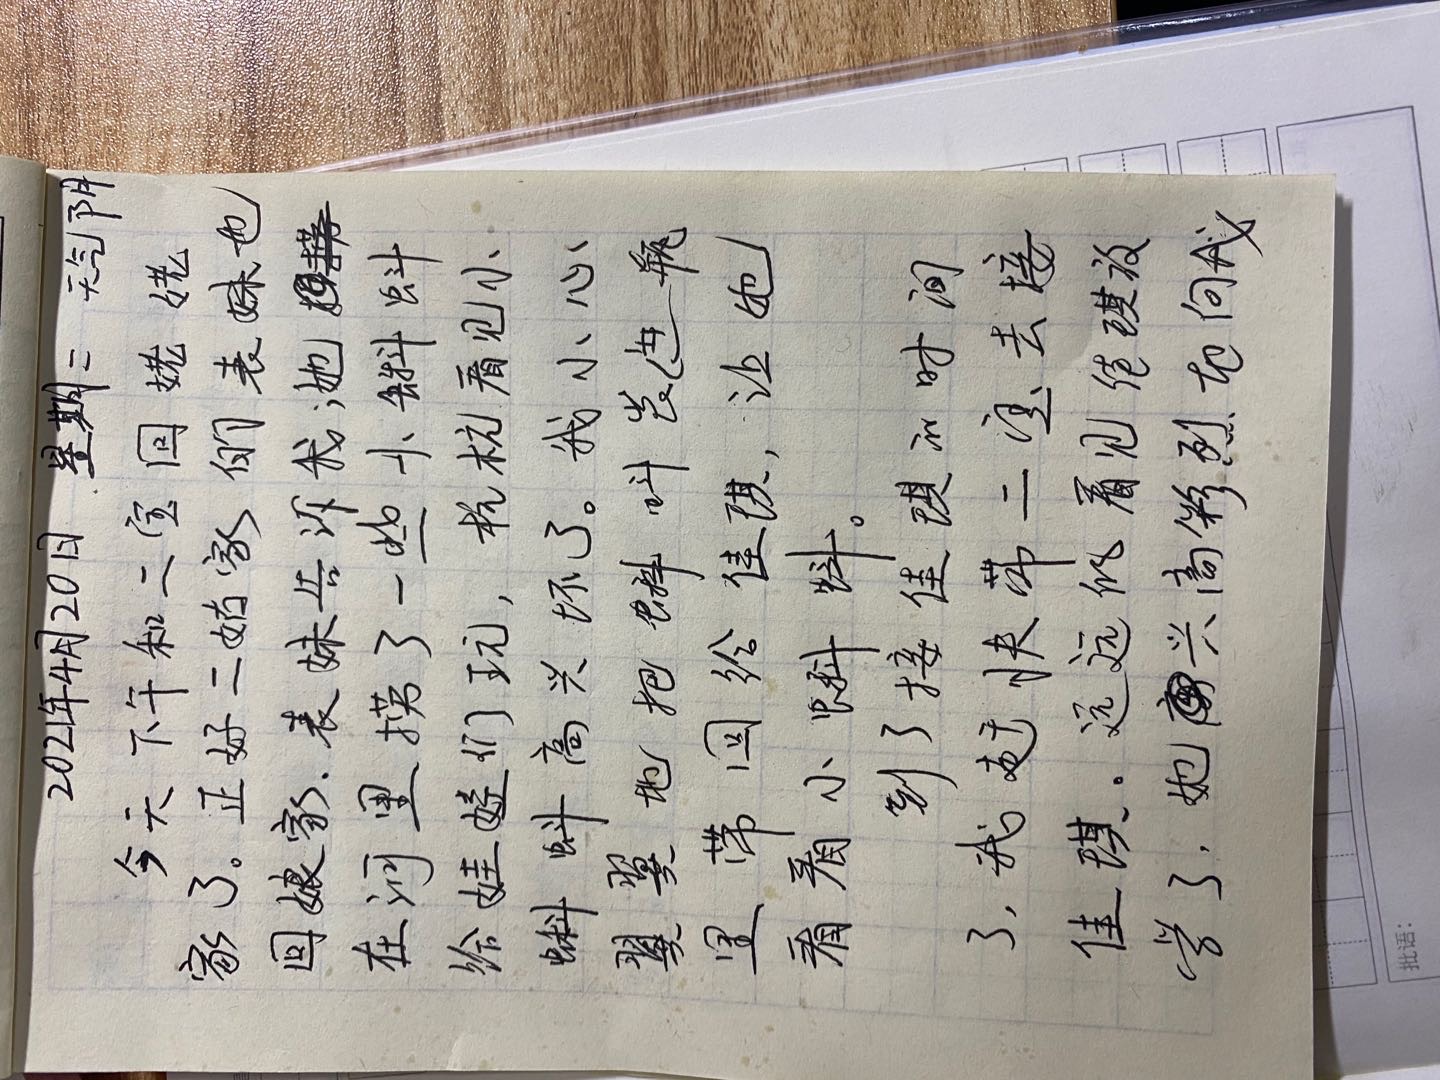 2021年4月20日 星期二 天气阴
今天下午和二宝回姥姥
家了。正好二姑家的表妹也
回娘家.表妹告诉我:她
在河里捞了一些小蝌蚪
给娃娃们玩,杭杭看见小
蝌蚪高兴坏了。我小心
翼翼地把蝌蚪装进瓶
里 带回给佳琪,让她
看看小蝌蚪。
到了接佳琪的时间
了,我赶快带二宝去接
佳琪。远远的看见佳琪放
学了,她兴高彩烈地向我
批语: